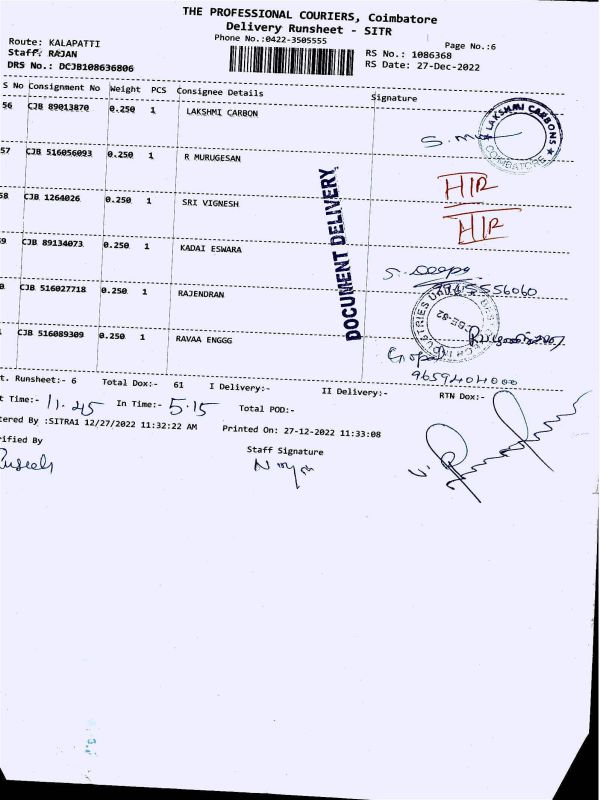 THE PROFESSIONAL COURIERS, Coimbatore
Delivery Runsheet - SITR
Phone No.:0422-3505555
Page No.:6
Route: KALAPATTI
Staff: RAJAN
RS No.: 1086368
DRS No.: DCJB108636806
RS Date: 27-Dec-2022
S No Consignment No Weight PCS Consignee Details Signature
56 CJB 89013870 0.250 1 LAKSHMI CARBON
LAKSHMI CARBONS
COIMBATORE
57 CJB 516056093 0.250 1 R MURUGESAN HIR
58 CJB 1264026 0.250 1 SRI VIGNESH HIR
DOCUMENT DELIVERY
9 CJB 89134073 0.250 1 KADAI ESWARA S. Deepa
0 CJB 516027718 0.250 1 RAJENDRAN
CJB 516089309 0.250 1 RAVAA ENGGG
9659404000
t. Runsheet:- 6 Total Dox:- 61 I Delivery:- II Delivery:- RTN Dox:-
t Time:- 11.45 In Time:- 5.15 Total POD:-
tered By :SITRA1 12/27/2022 11:32:22 AM Printed On: 27-12-2022 11:33:08
rified By Staff Signature